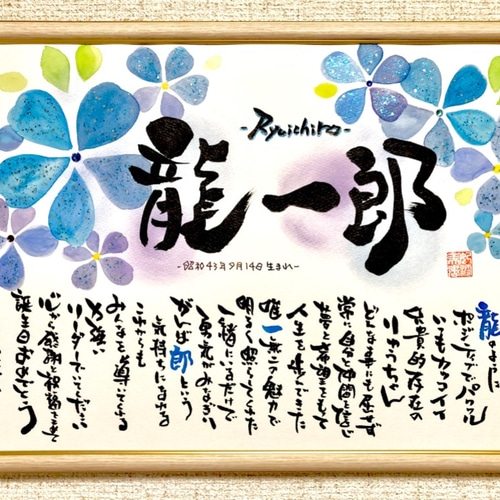 -Ryuichiro-
龍一郎
-昭和43年9月14日生まれ-
龍のように
ポジティブでパワフル
いつもカッコイイ
兄貴的存在の
りゅうちゃん
どんな事にも屈せず
常に自分と仲間を信じ
夢と希望をもって
人生を歩んできた
唯一無二の魅力で
明るく照らしてくれた
一緒にいるだけで
勇気がみなぎり
がんば郎という
気持ちになれる
これからも
みんなを導いてくれる
力強い
リーダーでいてください
心から感謝と祝福を込めて
誕生日おめでとう